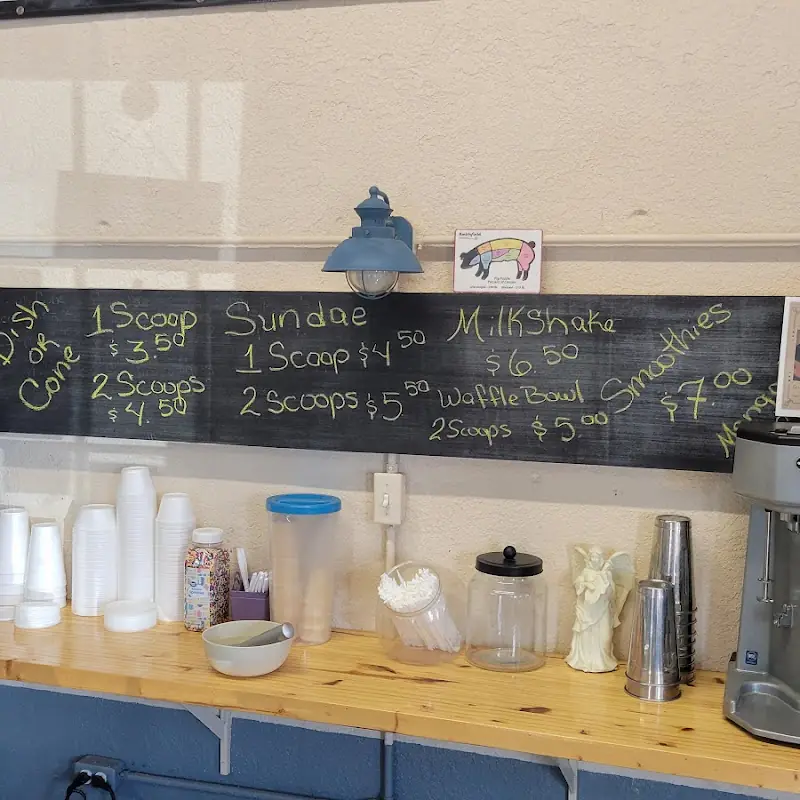 Dish
or
Cone
1 Scoop
$3.50
2 Scoops
$4.50
Sundae
1 Scoop $4 50
2 Scoops $5 50
MilkShake
$6.50
Waffle Bowl
2 Scoops $5 00
Smoothies
$7.00